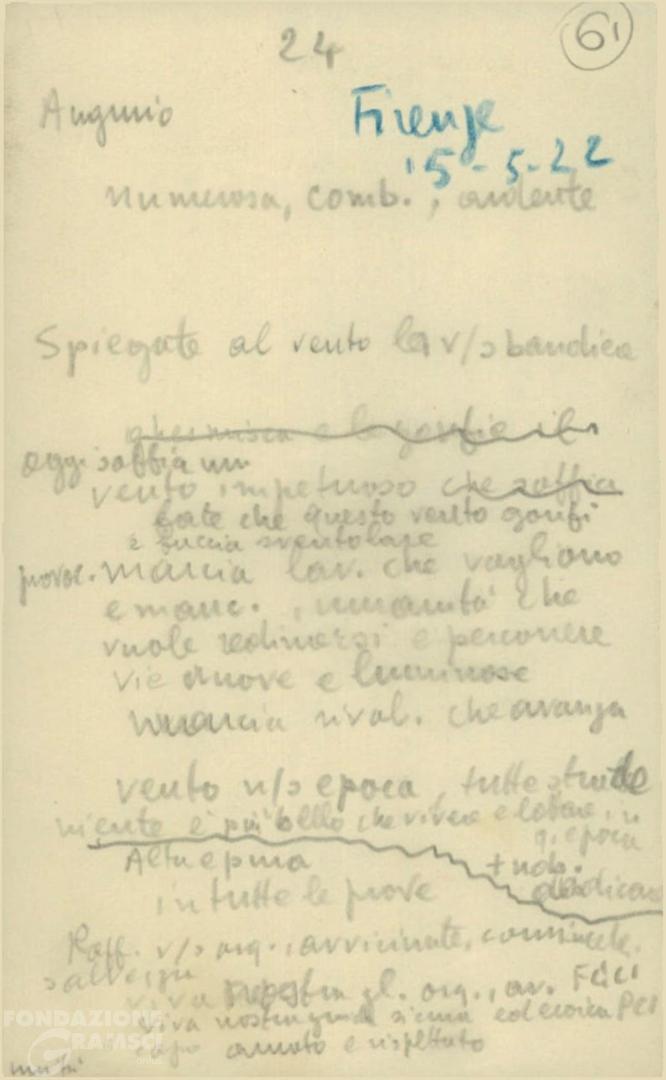 24
61
Augurio
Firenze
15-5-22
numerosa, comb., ardente
Spiegate al vento la v/s bandiera
e la gonfie il
oggi soffia un
vento impetuoso che soffia
fate che questo vento gonfi
e faccia sventolare
marcia lav. che vogliono
e manc., umanità che
vuole redimersi e percorrere
vie nuove e luminose
marcia rival. che avanza
vento n/s epoca, tutte strade
niente è più bello che vivere e lottare, in
q. epoca
Altri e pma
+ nob.
in tutte le prove
Raff. v/s org., avvicinate, convincete.
viva gl. org., av. FGCI
viva nostra guida sicura ed eroica PCI
capo amato e rispettato
FONDAZIONE
GRAMSCI